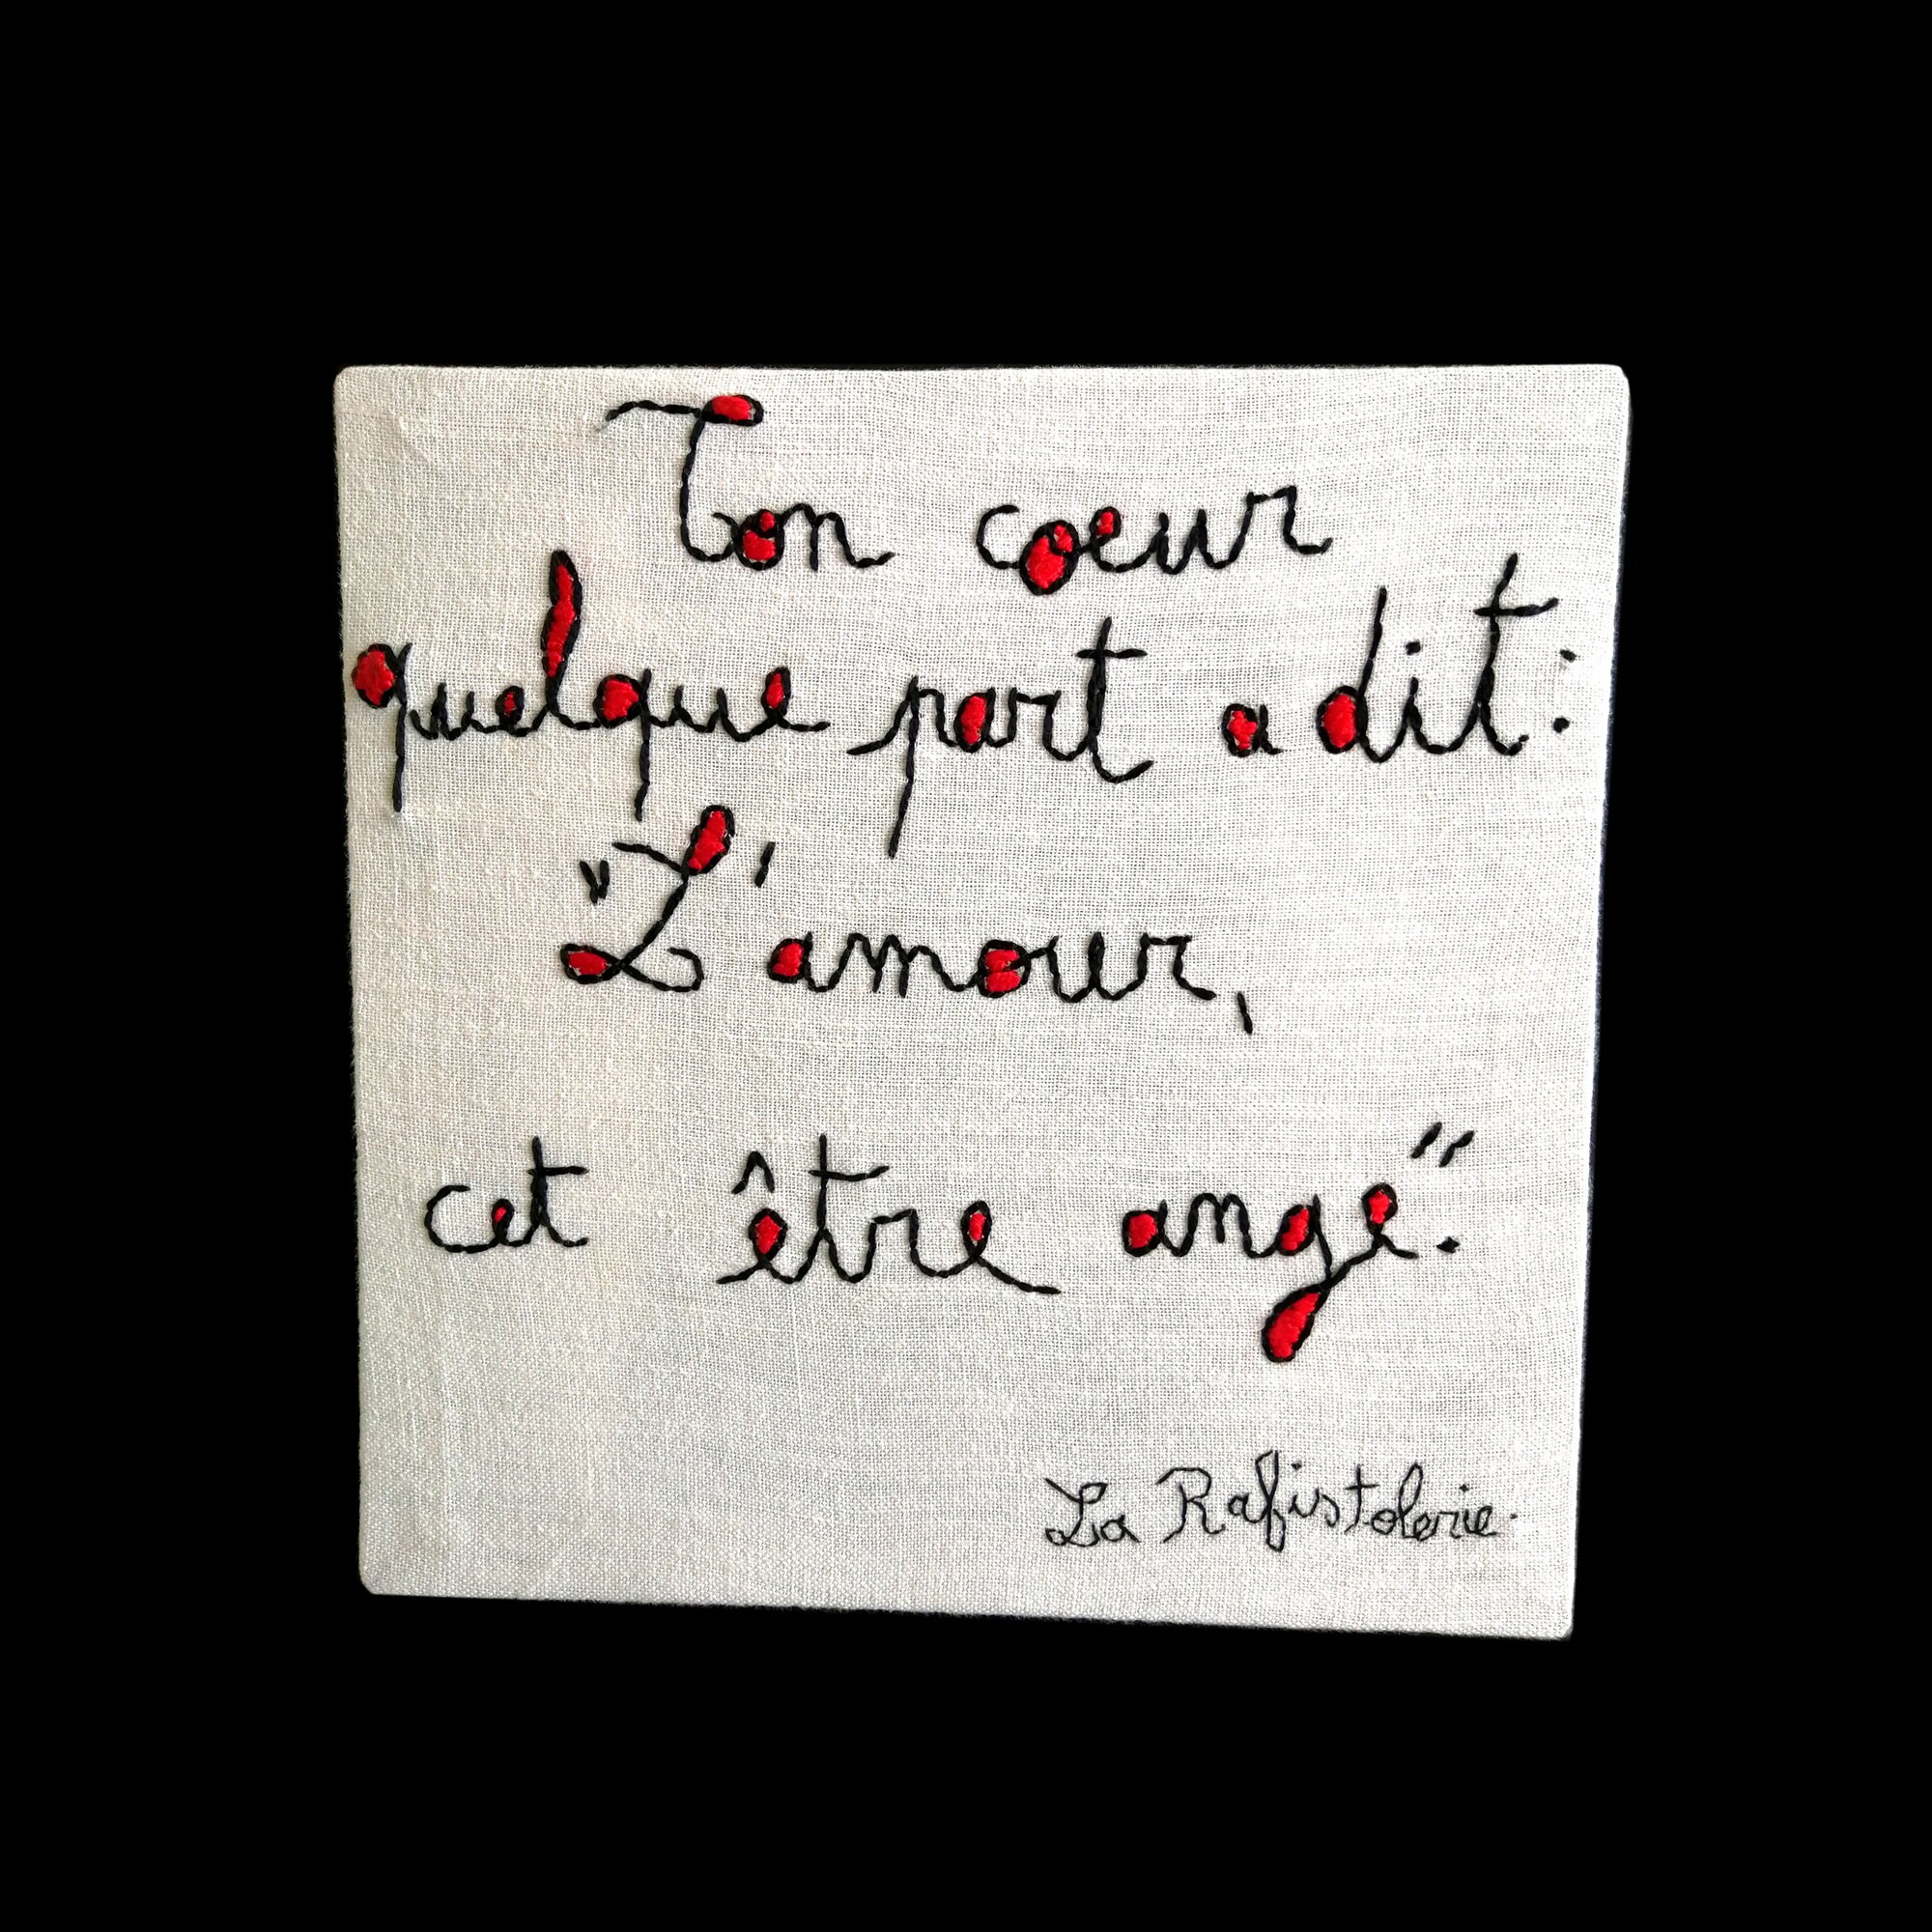 Ton cœur
quelque part a dit :
"L'amour,
cet être ange".
La Rafistolerie.